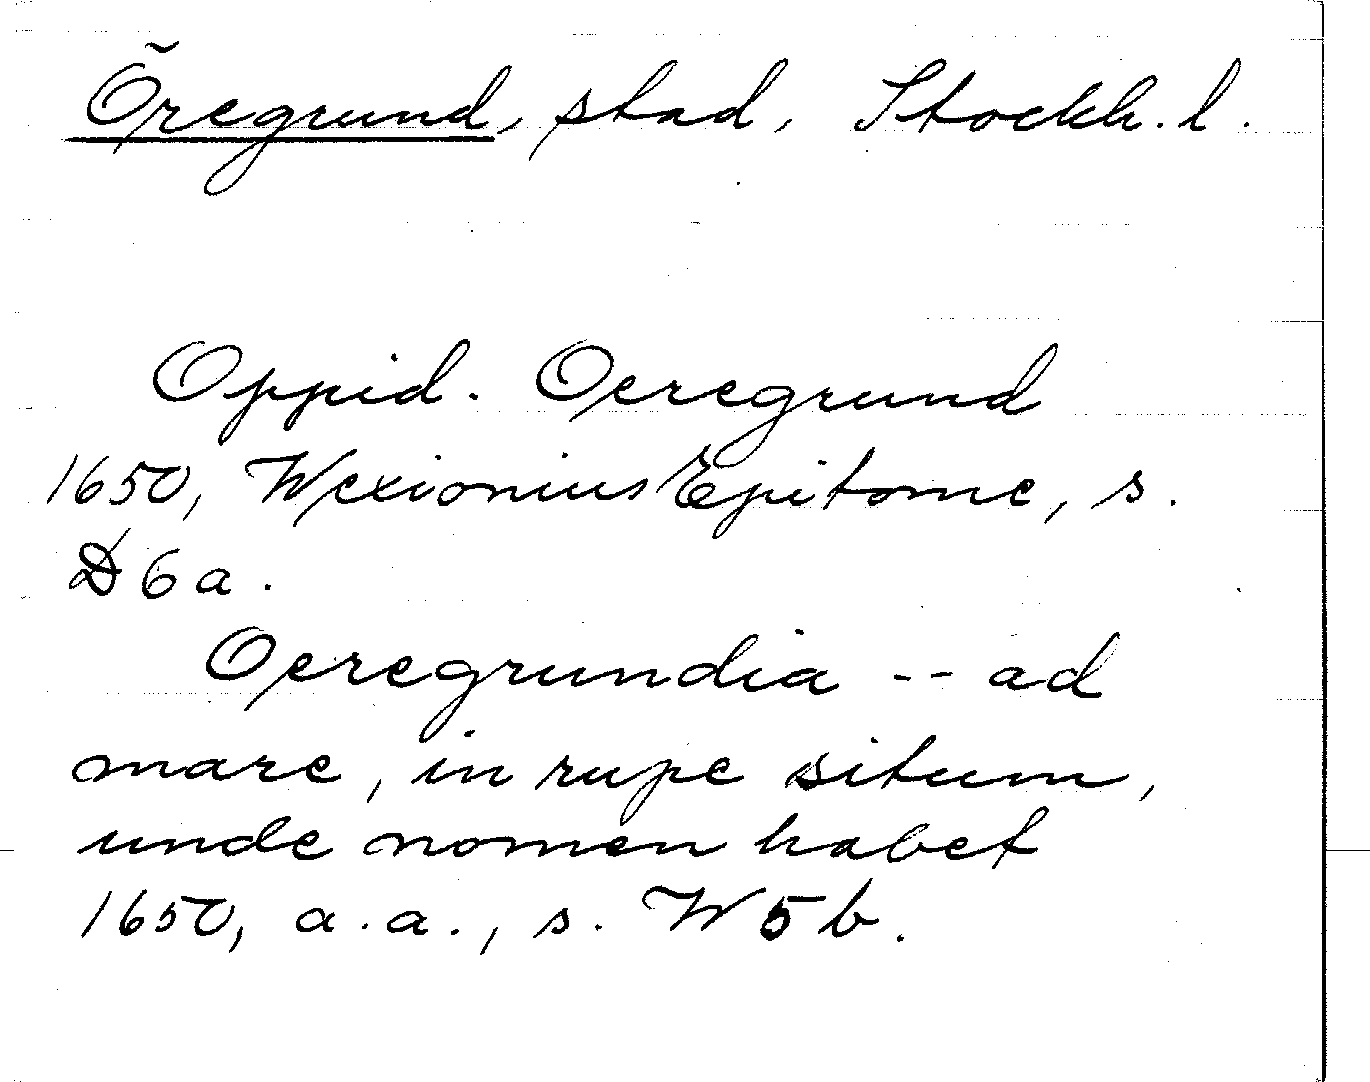 Öregrund, stad, Stockh. l.
Oppid. Oeregrund
1650, Wexionius Epitome, s.
D6a.
Oeregrundia -- ad
mare, in rupe situm,
unde nomen habet
1650, a.a., s. W5b.